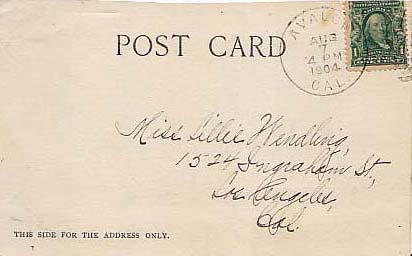 POST CARD
AVALON
AUG
7
4 PM
1904
CAL.
1 1
Miss Lillie Wendling,
1524 Ingraham St,
Los Angeles,
Cal.
THIS SIDE FOR THE ADDRESS ONLY.